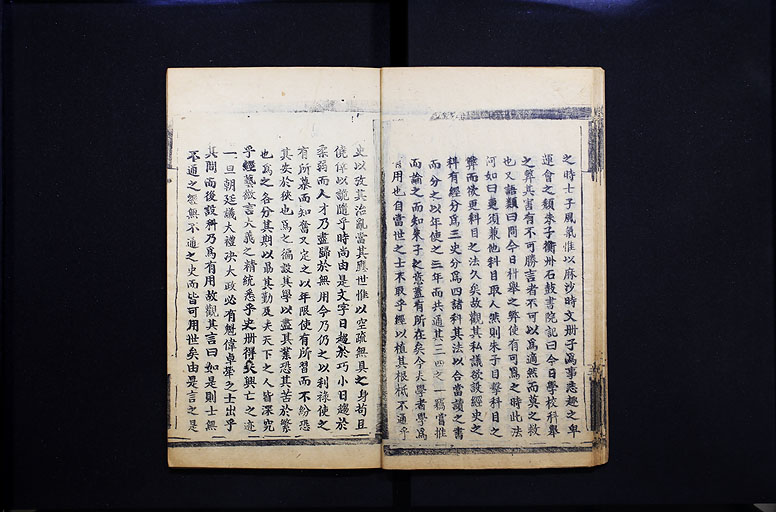 之時士子風氣惟以麻沙時文册子爲事悉趣之卑
運會之頹朱子衢州石鼓書院記曰今日學校科擧
之弊其害有不可勝言者不可以爲適然而莫之救
也又語類曰問今日科擧之弊使有可爲之時此法
何如曰更須兼他科目取人然則朱子目擊科目之
弊而後更科目之法久矣故觀其私議欲設經史之
科有經分爲三史分爲四諸科其法以合當讀之書
而分之以年使之三年而共通其三四之一竊嘗推
而論之而知朱子之意蓋有所在矣今夫學者學爲
有用也自當世之士不取乎經以植其根柢不通乎
史以攷其治亂當其應世惟以空疏無具之身苟且
僥倖以詭隨乎時尚由是文字日趨於巧小日趨於
柔弱而人才乃盡歸於無用今乃仍之以利祿使之
有所慕而知奮又定之以年限使有所習而不紛恐
其安於狹也爲之徧設其學以盡其業恐其苦於繁
也爲之各分其期以勗其勤及夫天下之人皆深究
乎經藝微言大義之精統悉乎史册得失興亡之迹
一旦朝廷議大禮决大政必有魁偉卓犖之士出乎
其間而後設科乃爲有用故觀其言曰如是則士無
不通之經無不通之史而皆可用世矣由是言之是